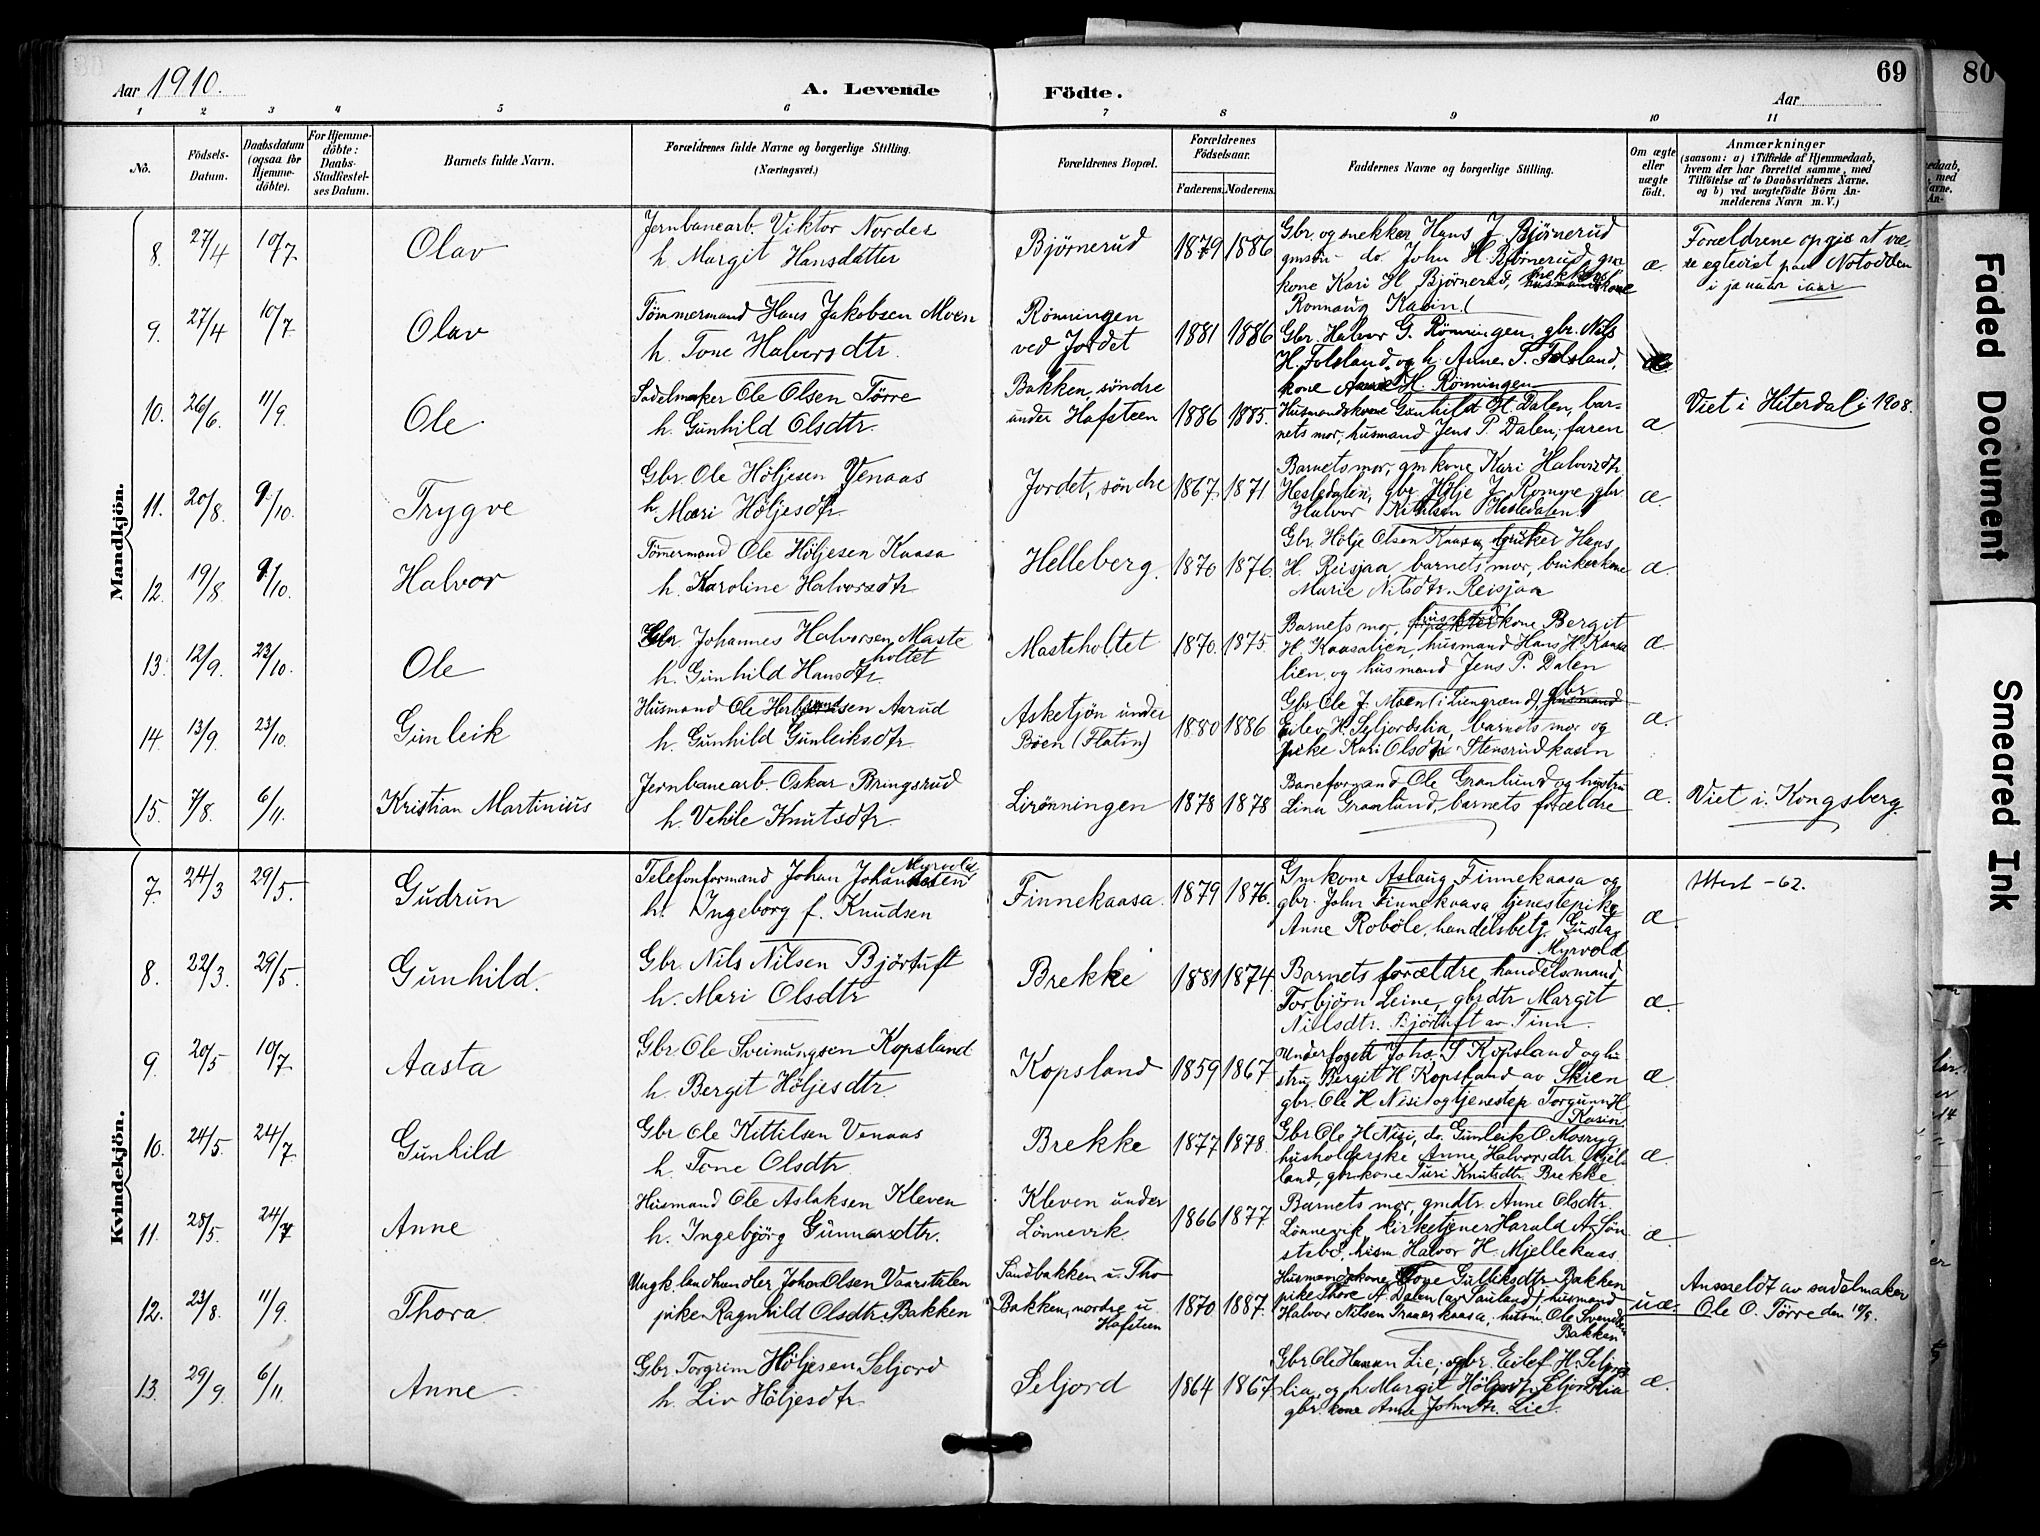 Aar 1910.
A. Levende
Födte.
Aar
69
80
1 2 3 4 5 6 7 8 9 10 11
No.
Födsels-
Datum.
Daabsdatum
(ogsaa for
Hjemme-
döbte).
For Hjemme-
döbte:
Daabs-
Stadfæstel-
ses Datum.
Barnets fulde Navn.
Forældrenes fulde Navne og borgerlige Stilling.
(Næringsvei.)
Forældrenes Bopæl.
Forældrenes
Födselsaar.
Faderens. Moderens.
Faddernes Navne og borgerlige Stilling.
Om ægte
eller
uægte
födt.
Anmærkninger
(saasom: a) i Tilfælde af Hjemmedaab,
hvem der har forrettet samme, med
Tilföielse af to Daabsvidners Navne.
og b) ved uægtefödte Börn An-
melderens Navn m. V.)
Mandkjön.
8. 27/4 10/7 Olav
Jernbanearb. Viktor Nordes
h. Margit Hansdatter
Bjørnerud 1879 1886
Gbr. og snekker Hans J. Bjørnerud
gmsøn - do. John H. Bjørnerud, gm
kone Kari H. Bjørnerud, snekker husmandskone
Ronnaug Kasin
æ.
Forældrene opgis at væ-
re egteviet paa Notodden
i januar iaar
9. 27/4 10/7 Olav
Tömmermand Hans Jakobsen Moen
h. Tone Halvorsdtr.
Rønningen
ved Jordet
1881 1886
Gbr. Halvor G. Rønningen, gbr. Nils
H. Folsland og h. Anne P. Folsland,
kone Anne H. Rønningen
æ
10. 26/6. 11/9. Ole
Sadelmaker Ole Olsen Tørre
h. Gunhild Olsdtr.
Bakken, søndre
under Hafsteen
1886 1885.
Husmandskone Gunhild H. Dalen, bar-
nets mor, husmand Jens P. Dalen, faren
æ.
Viet i Hiterdal i 1908.
11. 20/8. 9/10. Trygve
Gbr. Ole Höljesen Venaas
h. Mari Höljesdtr
Jordet, søndre 1867 1871
Barnets mor, gm kone Kari Halvorsdtr.
Hesledalen, gbr. Hölje J. Romme, gbr.
Halvor Kittilsen Hesledalen.
æ.
12. 19/8. 9/10. Halvor
Tömermand Ole Höljesen Kaasa
h. Karoline Halvorsdtr
Helleberg. 1870 1876.
Gbr. Hölje Olsen Kaasa, bruker Hans
H. Reisjaa, barnets mor, brukerkone
Marie Nilsdtr. Reisjaa
æ.
13. 12/9. 23/10. Ole
Gbr Johannes Halvorsen Maste
holtet
h. Gunhild Hansdtr.
Masteholtet 1870. 1875.
Barnets mor, husmandskone Bergit
H. Kaasalien, husmand Hans H. Kaasa
lien og husmand Jens P. Dalen
æ
14. 13/9. 23/10. Gunleik
Husmand Ole Herbjørnsen Aarud
h. Gunhild Gunleiksdtr.
Asketjön under
Bøen (Flatin)
1880 1886
Gbr Ole J. Moen (i Liengrænd), gbr husmand
Eilev H. Seljordslia, barnets mor og
pike Kari Olsdtr Stensrudkasin
æ.
15. 7/8. 6/11. Kristian Martinius
Jernbanearb. Oskar Bringsrud
h. Vehle Knutsdtr.
Lirönningen 1878 1878
Baneformand Ole Granlund og hustru
Lina Granlund, barnets forældre
æ.
Viet i Kongsberg.
Kvindekjön.
7. 24/3 29/5. Gudrun
Telefonformand Johan Johannesen Myrvold
h. Ingeborg f. Knudsen
Finnekaasa. 1879 1876.
Gmkone Aslaug Finnekaasa og
gbr. John Finnekaasa, tjenestepike
Anne Roböle, handelsbetj. Gustav
Myrvold
æ.
Attest - 62.
8. 22/3. 29/5. Gunhild.
Gbr. Nils Nilsen Björtuft
h. Mari Olsdtr
Brekke 1881 1874.
Barnets forældre, handelsmand
Torbjørn Leine, gbrdtr Margit
Nilsdtr. Björtuft av Tinn.
æ.
9. 20/5 10/7. Aasta
Gbr. Ole Sveinungsen Kopsland
h. Bergit Höljesdtr.
Kopsland 1859 1867
Underfogd Johs. S. Kopsland og hu-
stru Bergit H. Kopsland av Skien
gbr. Ole H. Nisi og tjenestep Torgunn H.
Kasin.
æ.
10. 24/5. 24/7. Gunhild
Gbr Ole Kittilsen Venaas
h. Tone Olsdtr.
Brekke 1877 1878.
Gbr. Ole H. Nisi, do. Gunleik O. Mosryg
husholderske Anne Halvorsdtr
land, gbrkone Turi Knutsdtr. Brekke.
æ.
11. 25/5. 24/7 Anne
Husmand Ole Aslaksen Kleven
h. Ingebjörg Gunnarsdtr.
Kleven under
Lönnevik.
1866 1877.
Barnets mor, gmdtr. Anne Olsdtr.
Lönnevik, kirketjener Harald A. Søn
stebö, husm. Halvor H. Mjellekaas
æ.
12. 23/8. 11/9. Thora.
Ungk. landhandler Johan Olsen Vaarstulen
pike Ragnhild Olsdtr. Bakken
Sandbakken u. Tho
Bakken, nordre u.
Hafsteen
1870 1887.
Husmandskone Tone Gulliksdtr. Bakken
pike Thore A. Dalen (av Sauland), husmand
Halvor Nilsen Traaerkaasa, husm. Ole Svendsen
Bakken
uæ.
Anmeldt av sadelmaker
Ole O. Tørre den 10/9.
13. 29/9. 6/11. Anne
Gbr. Torgrim Höljesen Seljord
h. Liv Höljesdtr.
Seljord 1864 1867
Gbr Ole Hansen Lie, gbr. Eilef H. Seljords
lia, og h. Margit Höljesdtr. Seljordslia
gbr. kone Anne Johnsdtr. Lie.
æ.
Faded Document
Smeared Ink